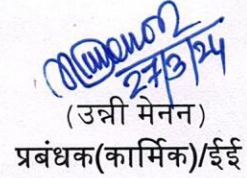 27/3/24
(उन्नी मेनन)
प्रबंधक(कार्मिक)/ईई